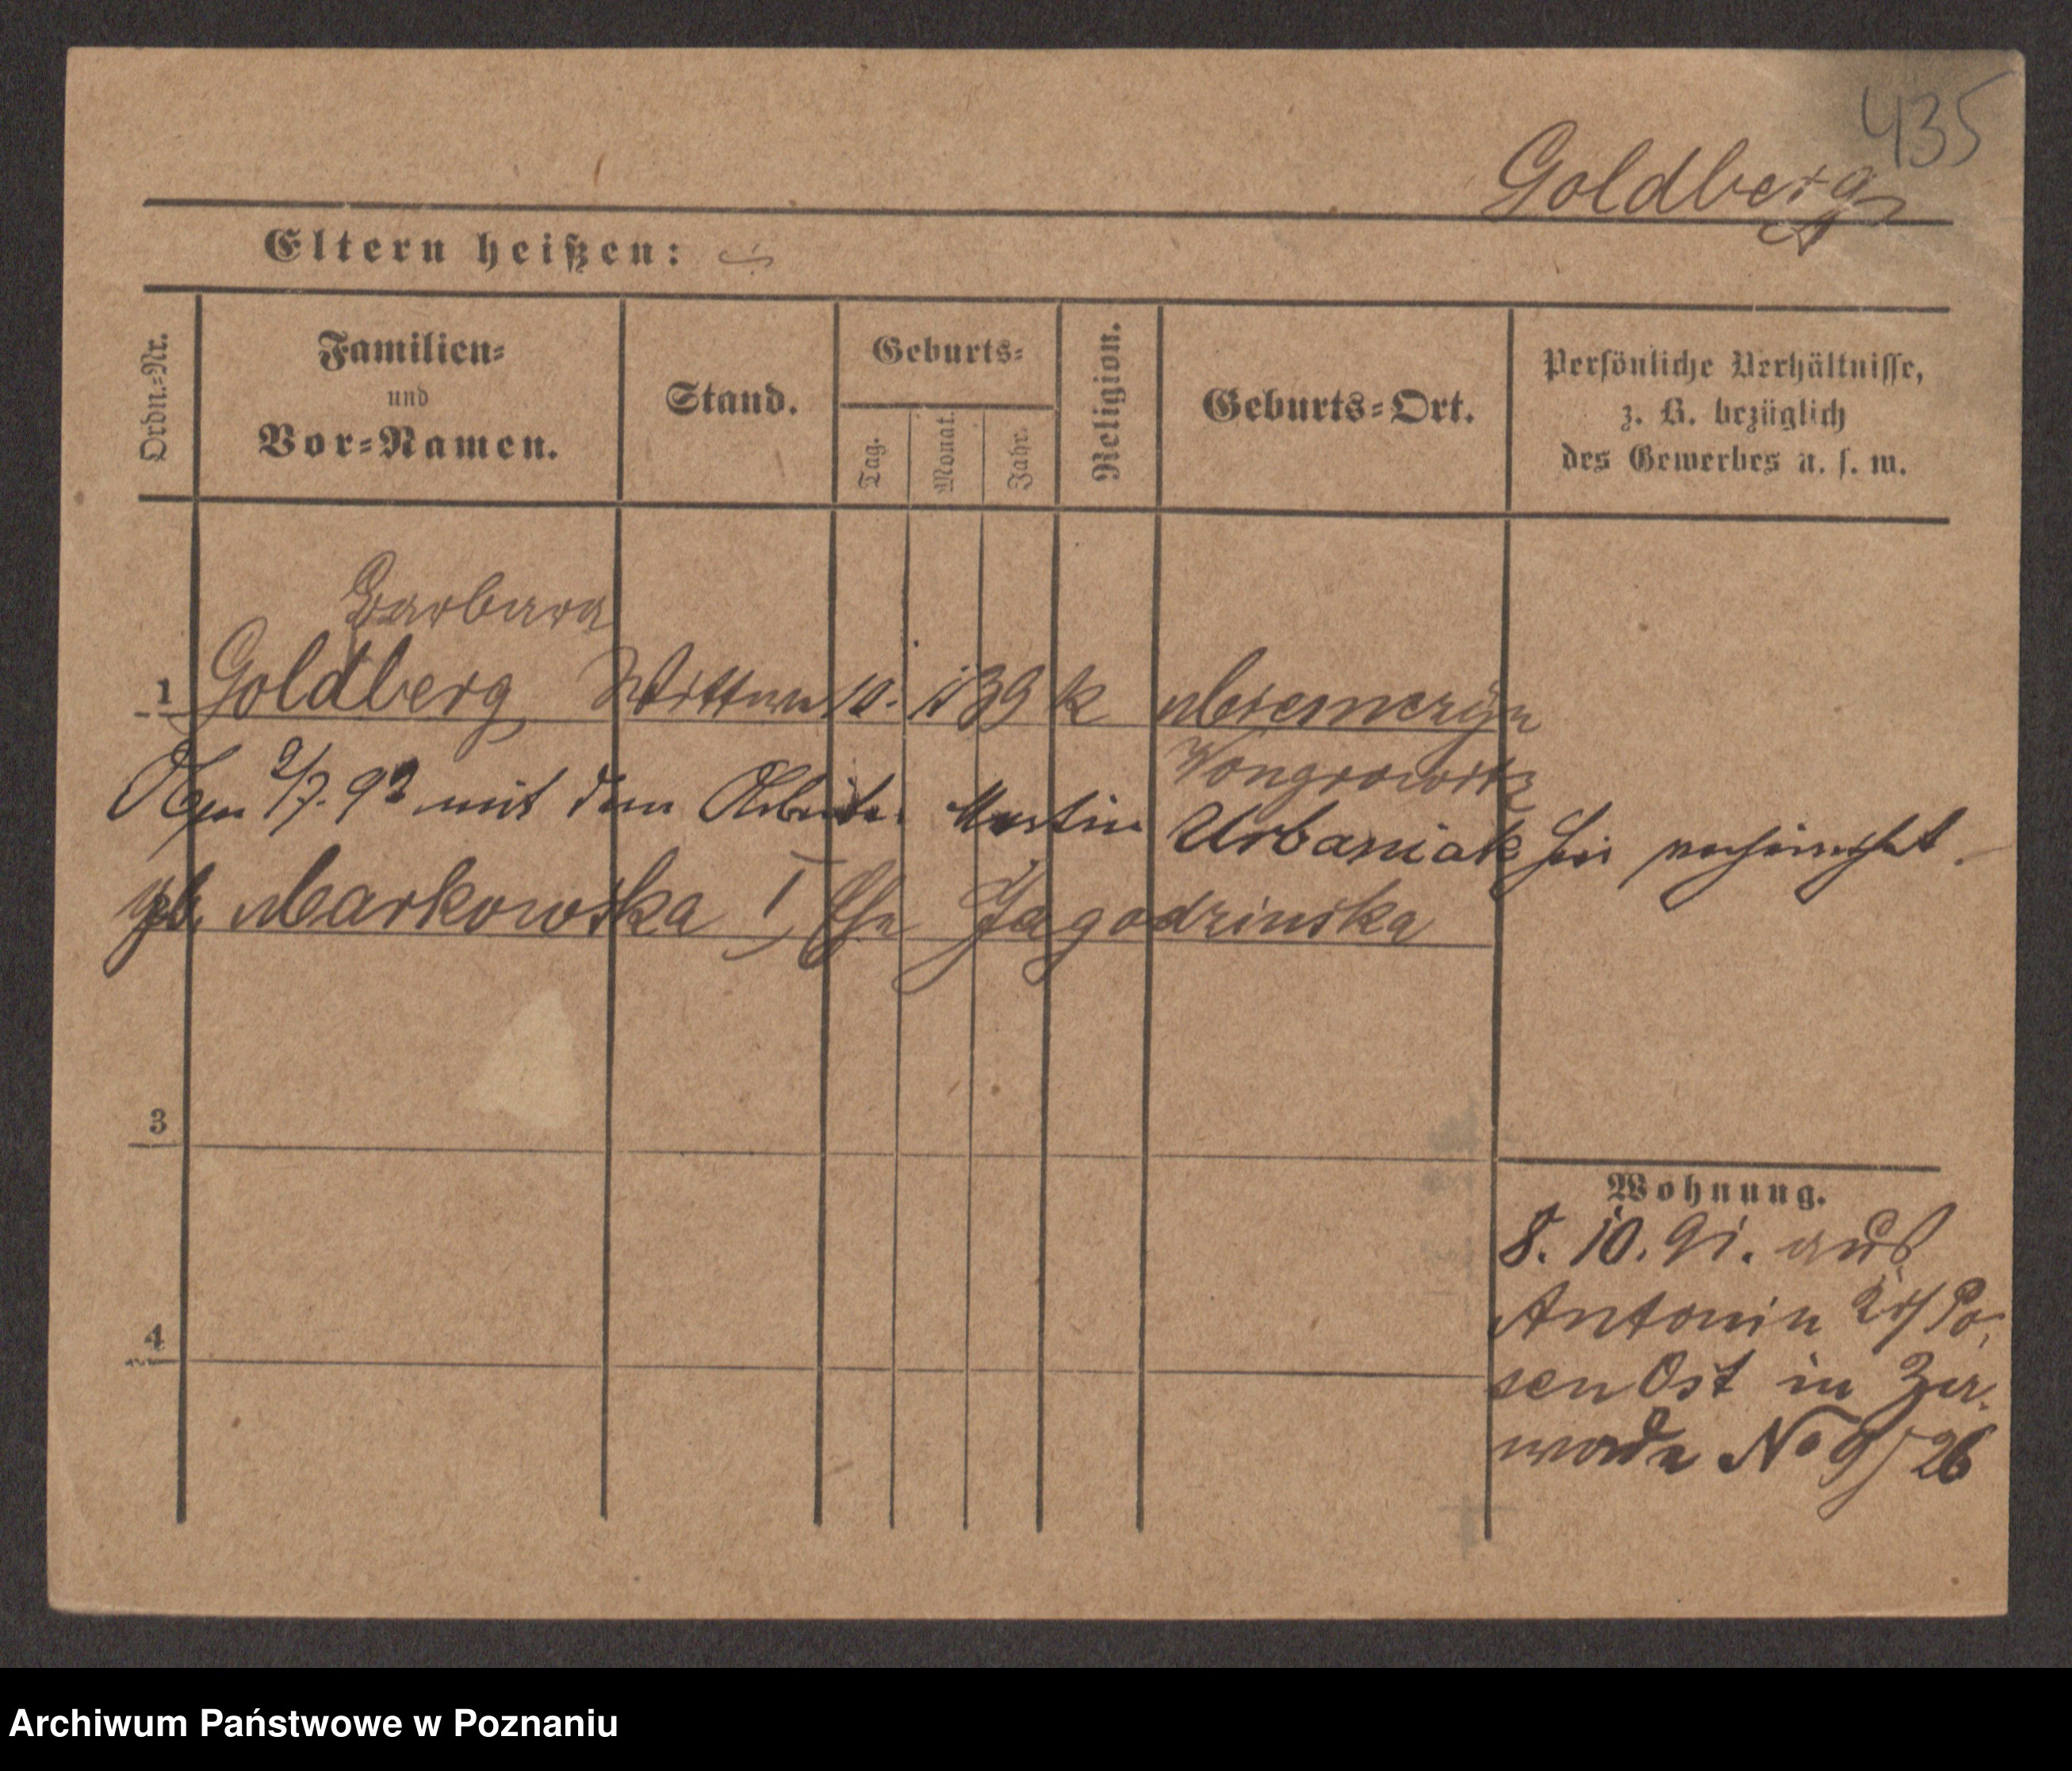 435
Goldberg
Eltern heißen:
Ordn.-Nr.
Familien-
und
Vor-Namen.
Stand.
Geburts-
Tag.
Monat.
Jahr.
Religion.
Geburts-Ort.
Persönliche Verhältnisse,
z. B. bezüglich
des Gewerbes u. s. w.
Barbara
1 Goldberg Wittwe 10. 39 k
Wongrowitz
2/7. 92 mit dem Arbeiter Martin Urbaniak hier
gb. Markowska I Ehe Jagodzinska
3
4
Wohnung.
8. 10. 91. aus
Antonin Po-
sen Ost in Zer-
No 9/26
Archiwum Państwowe w Poznaniu